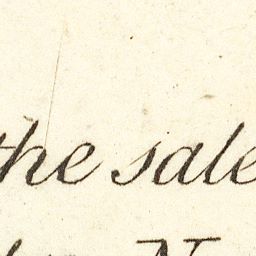 the sale